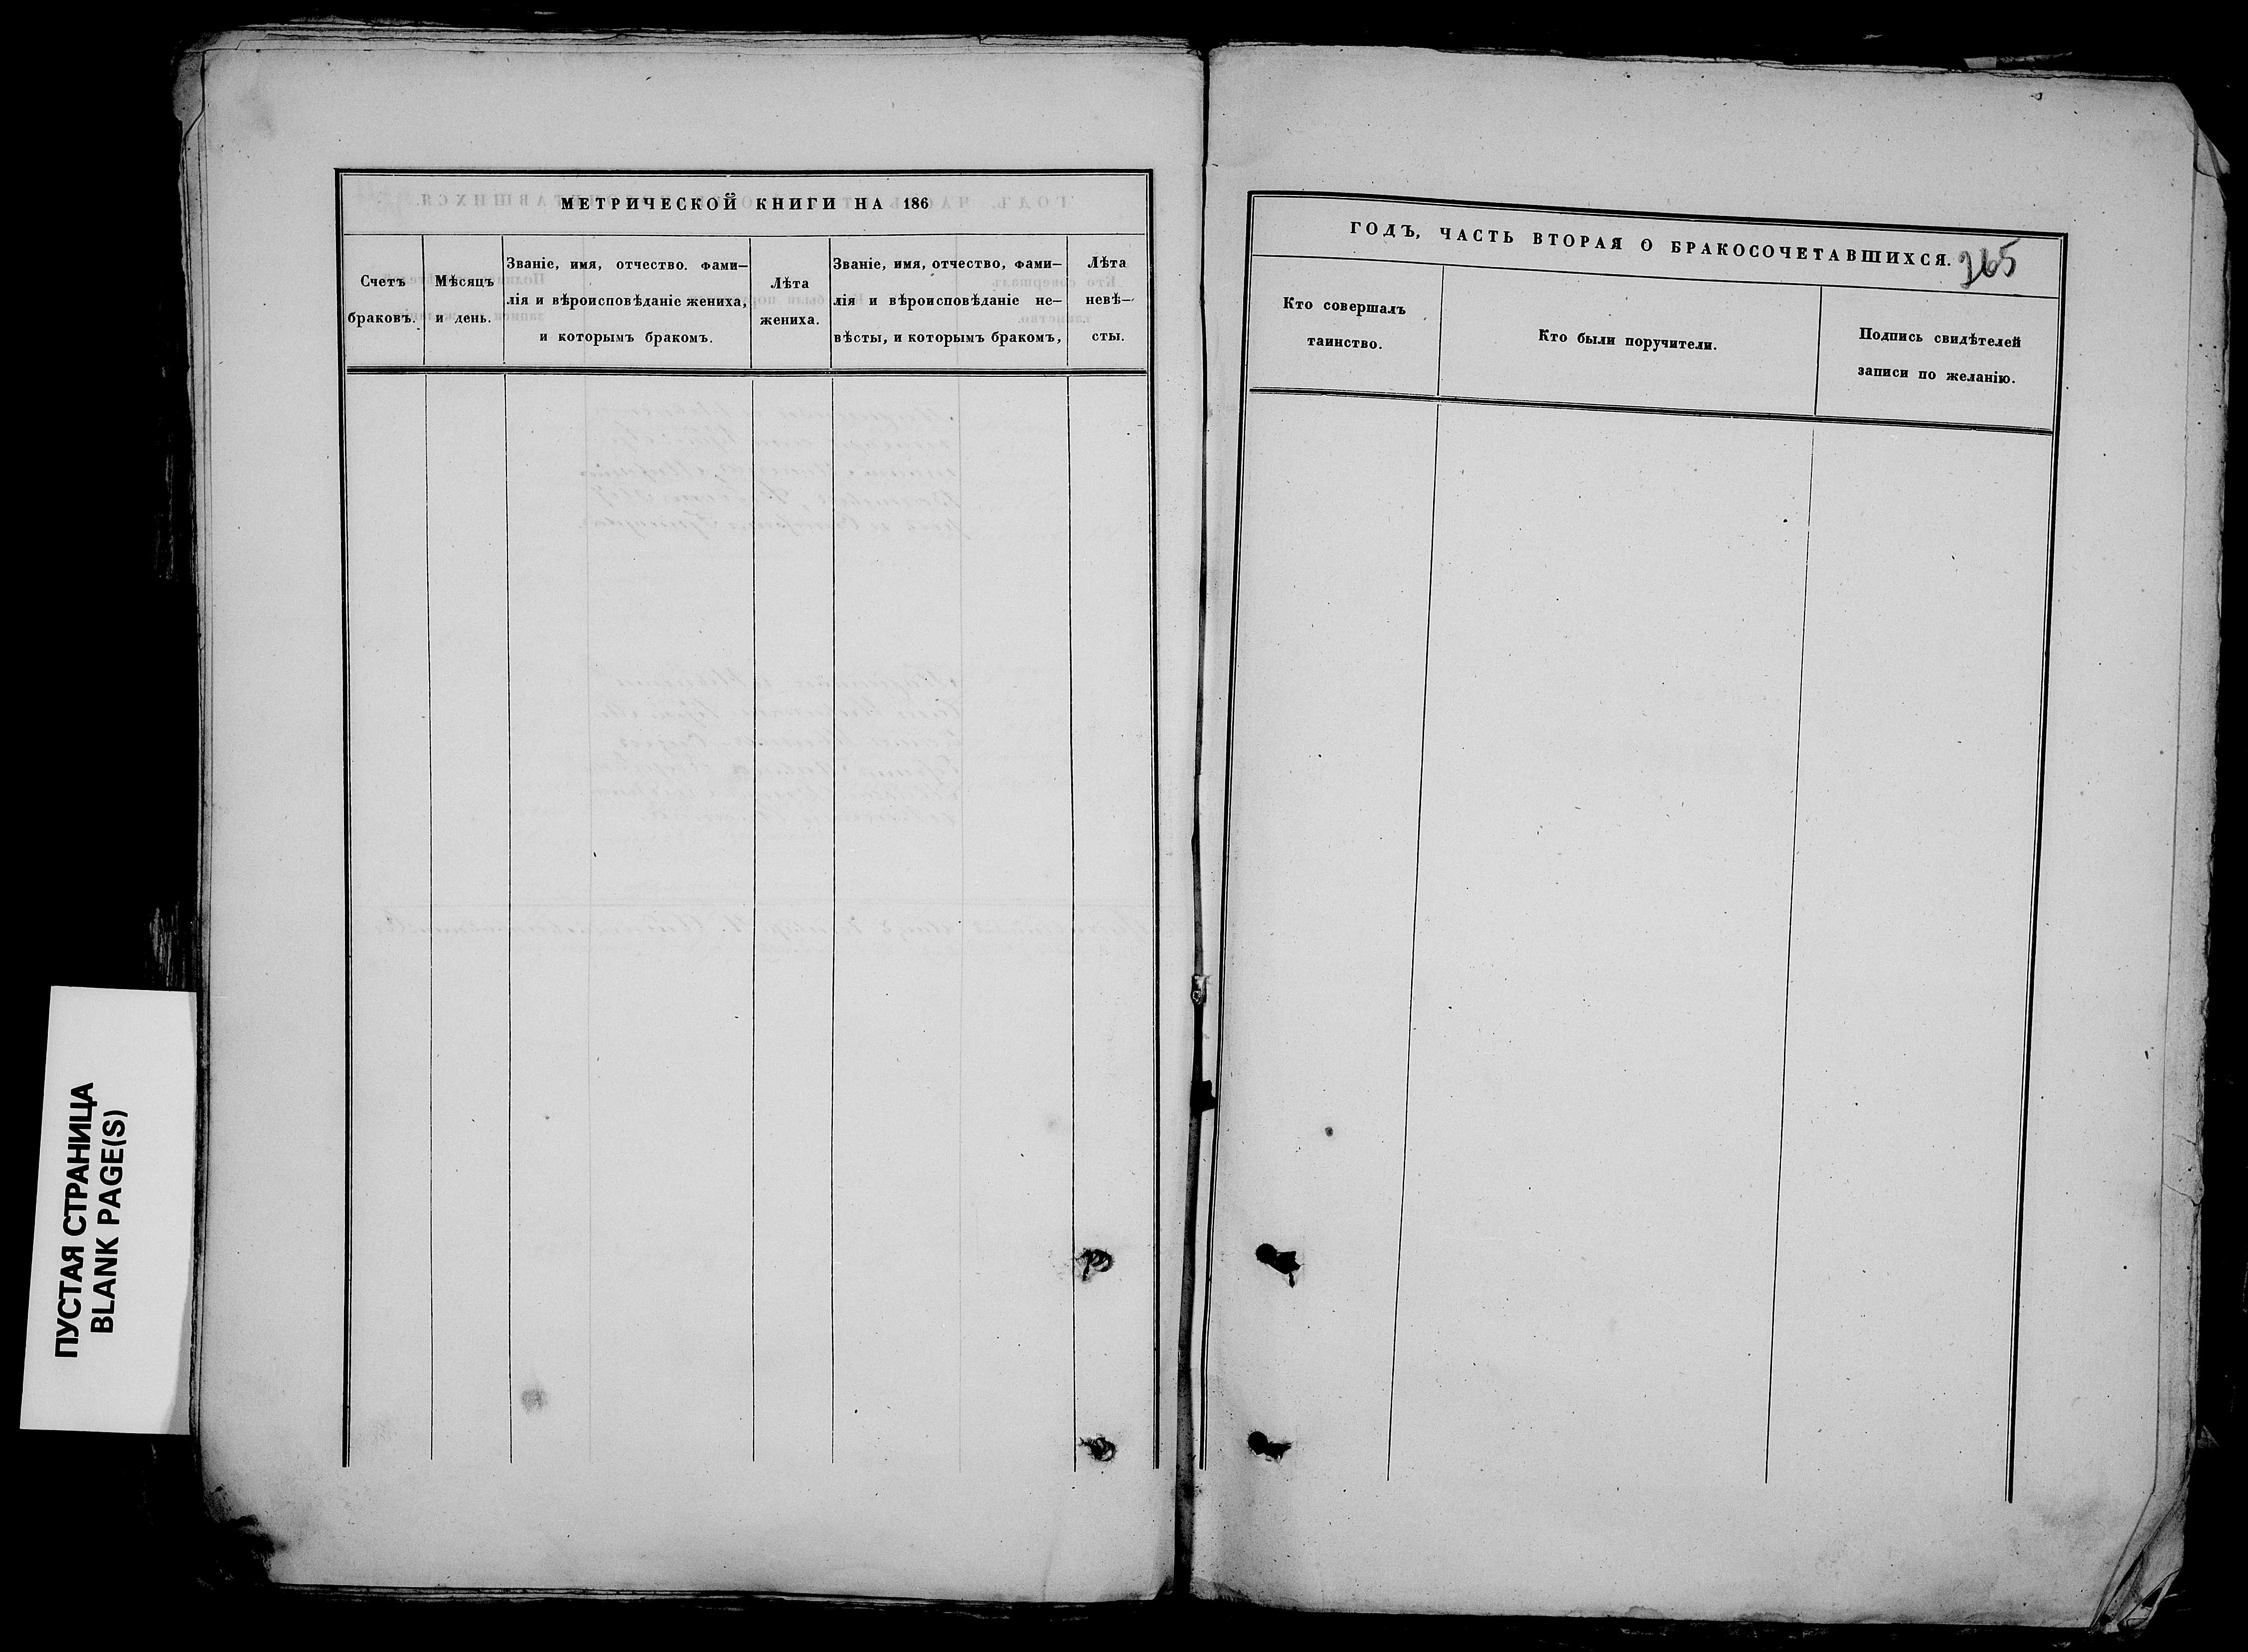 МЕТРИЧЕСКОЙ КНИГИ НА 186
Счетъ
браковъ.
Мѣсяцъ
и день.
Званіе, имя, отчество. фами—
лія и вѣроисповѣданіе жениха,
и которымъ бракомъ.
Лѣта
жениха.
Званіе, имя, отчество, фами—
лія и вѣроисповѣданіе не—
вѣсты, и которымъ бракомъ,
Лѣта
невѣ—
сты.
ГОДЪ, ЧАСТЬ ВТОРАЯ О БРАКОСОЧЕТАВШИХСЯ.
365
Кто совершалъ
таинство.
Кто были поручители.
Подпись свидѣтелей
записи по желанію.
ПУСТАЯ СТРАНИЦА
BLANK PAGE(S)